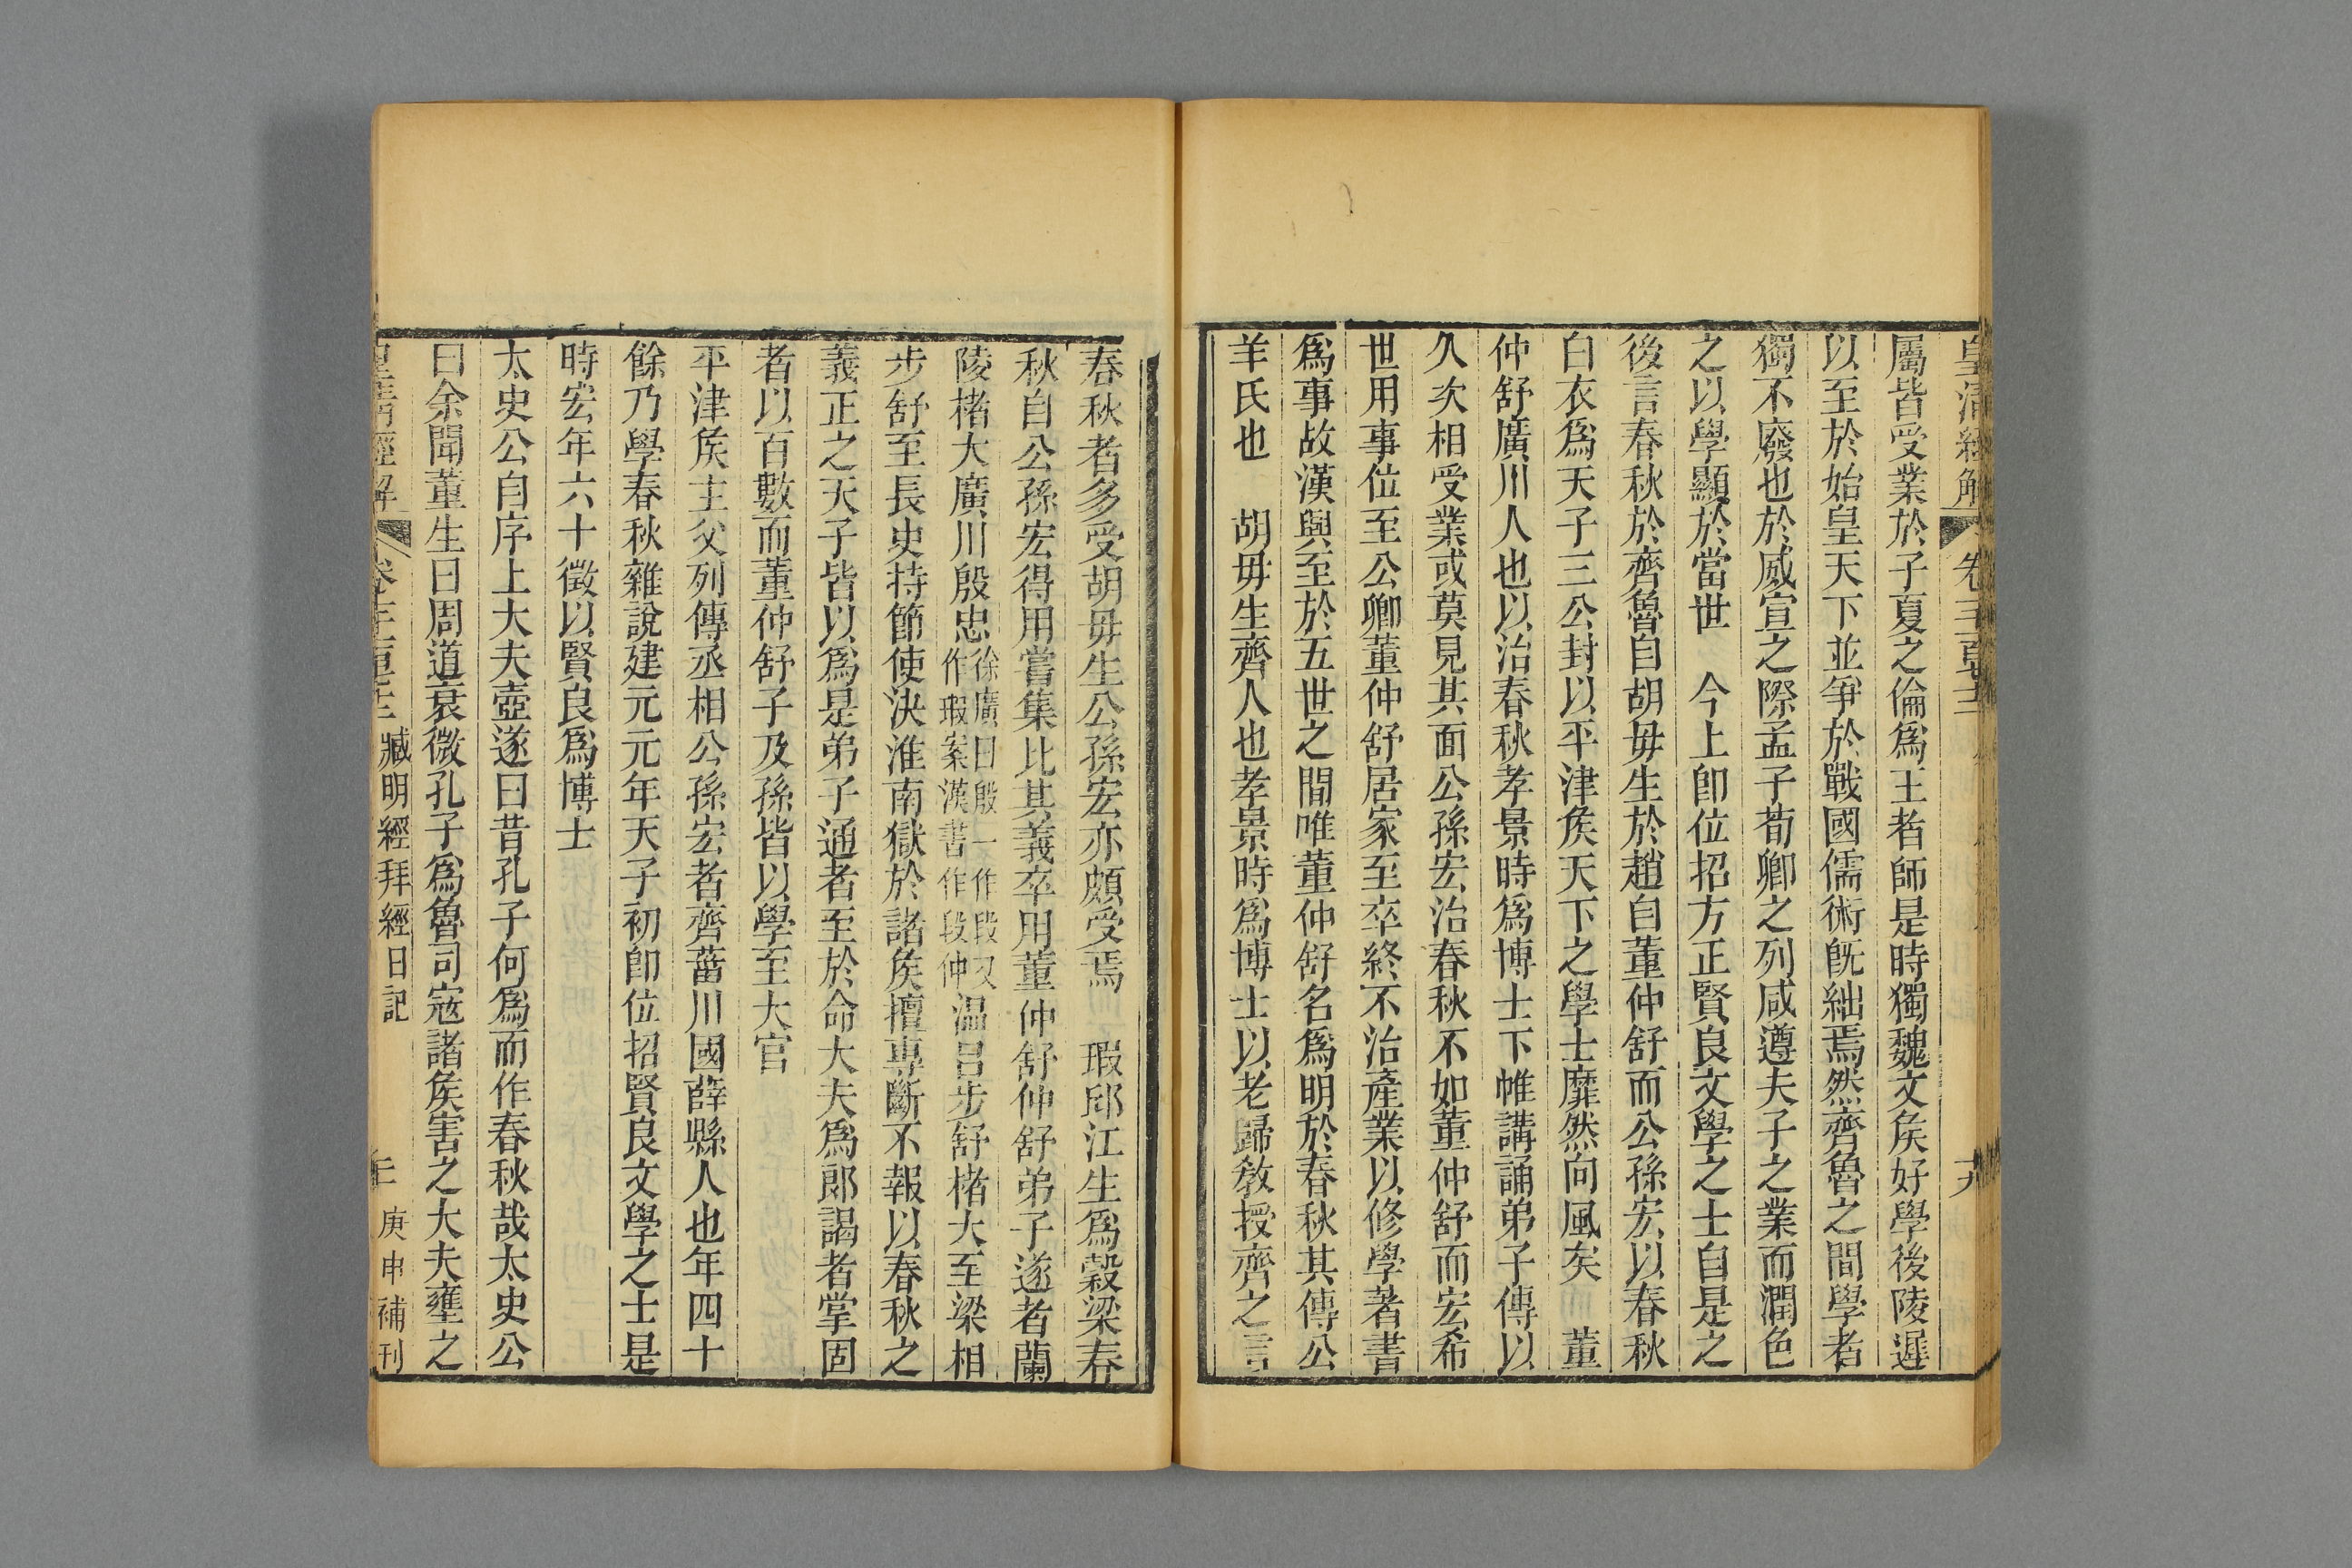 皇清經解 卷 十九
屬皆受業於子夏之倫爲王者師是時獨魏文矦好學後陵遲
以至於始皇天下並爭於戰國儒術旣絀焉然齊魯之間學者
獨不廢也於威宣之際孟子荀卿之列咸遵夫子之業而潤色
之以學顯於當世　今上卽位招方正賢良文學之士自是之
後言春秋於齊魯自胡毋生於趙自董仲舒而公孫宏以春秋
白衣爲天子三公封以平津矦天下之學士靡然向風矣　董
仲舒廣川人也以治春秋孝景時爲博士下帷講誦弟子傳以
久次相受業或莫見其面公孫宏治春秋不如董仲舒而宏希
世用事位至公卿董仲舒居家至卒終不治產業以修學著書
爲事故漢興至於五世之間唯董仲舒名爲明於春秋其傳公
羊氏也　胡毋生齊人也孝景時爲博士以老歸敎授齊之言
春秋者多受胡毋生公孫宏亦頗受焉　瑕邱江生爲穀梁春
秋自公孫宏得用嘗集比其義卒用董仲舒仲舒弟子遂者蘭
陵楮大廣川殷忠徐廣曰殷一作段又作瑕案漢書作段仲溫呂步舒楮大至梁相
步舒至長史持節使決淮南獄於諸矦擅專斷不報以春秋之
義正之天子皆以爲是弟子通者至於命大夫爲郞謁者掌固
者以百數而董仲舒子及孫皆以學至大官
平津矦主父列傳丞相公孫宏者齊菑川國薛縣人也年四十
餘乃學春秋雜說建元元年天子初卽位招賢良文學之士是
時宏年六十徵以賢良爲博士
太史公自序上大夫壺遂曰昔孔子何爲而作春秋哉太史公
曰余聞董生曰周道衰微孔子爲魯司寇諸矦害之大夫壅之
皇清經解 臧明經拜經日記 庚申補刊